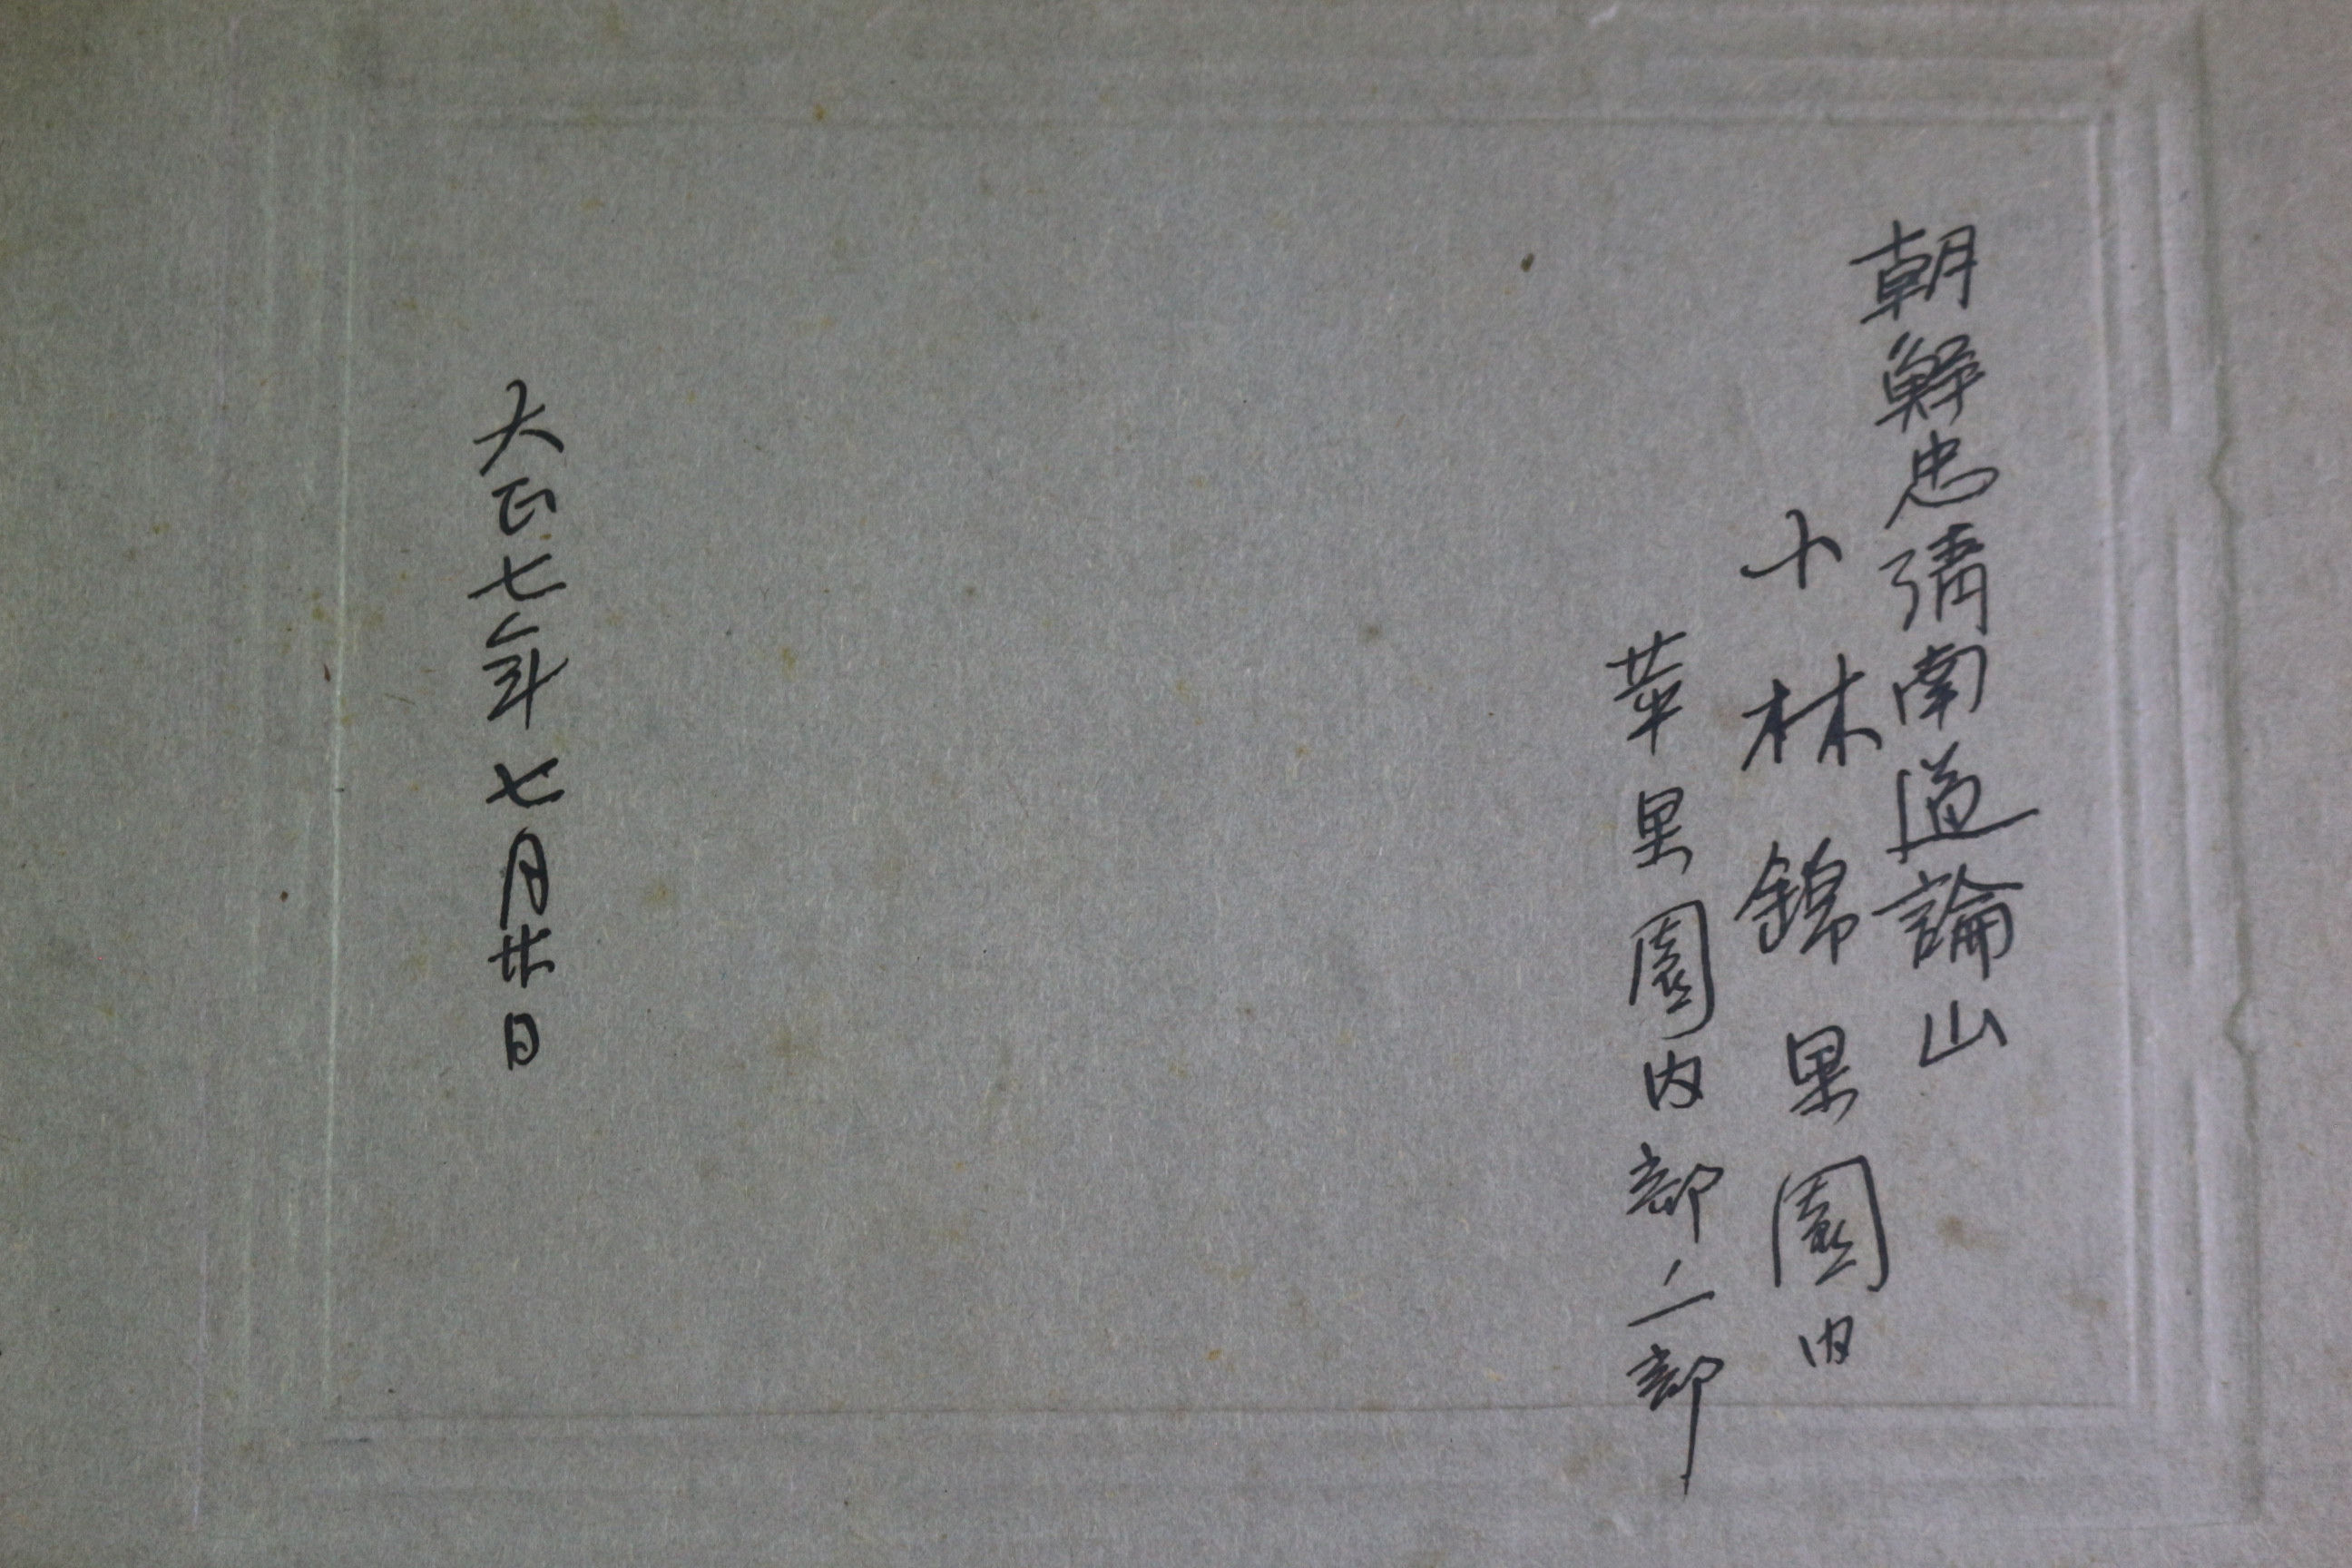 朝鮮忠清南道論山
小林錦果園内
苹果園内部ノ一部
大正七年七月廿日